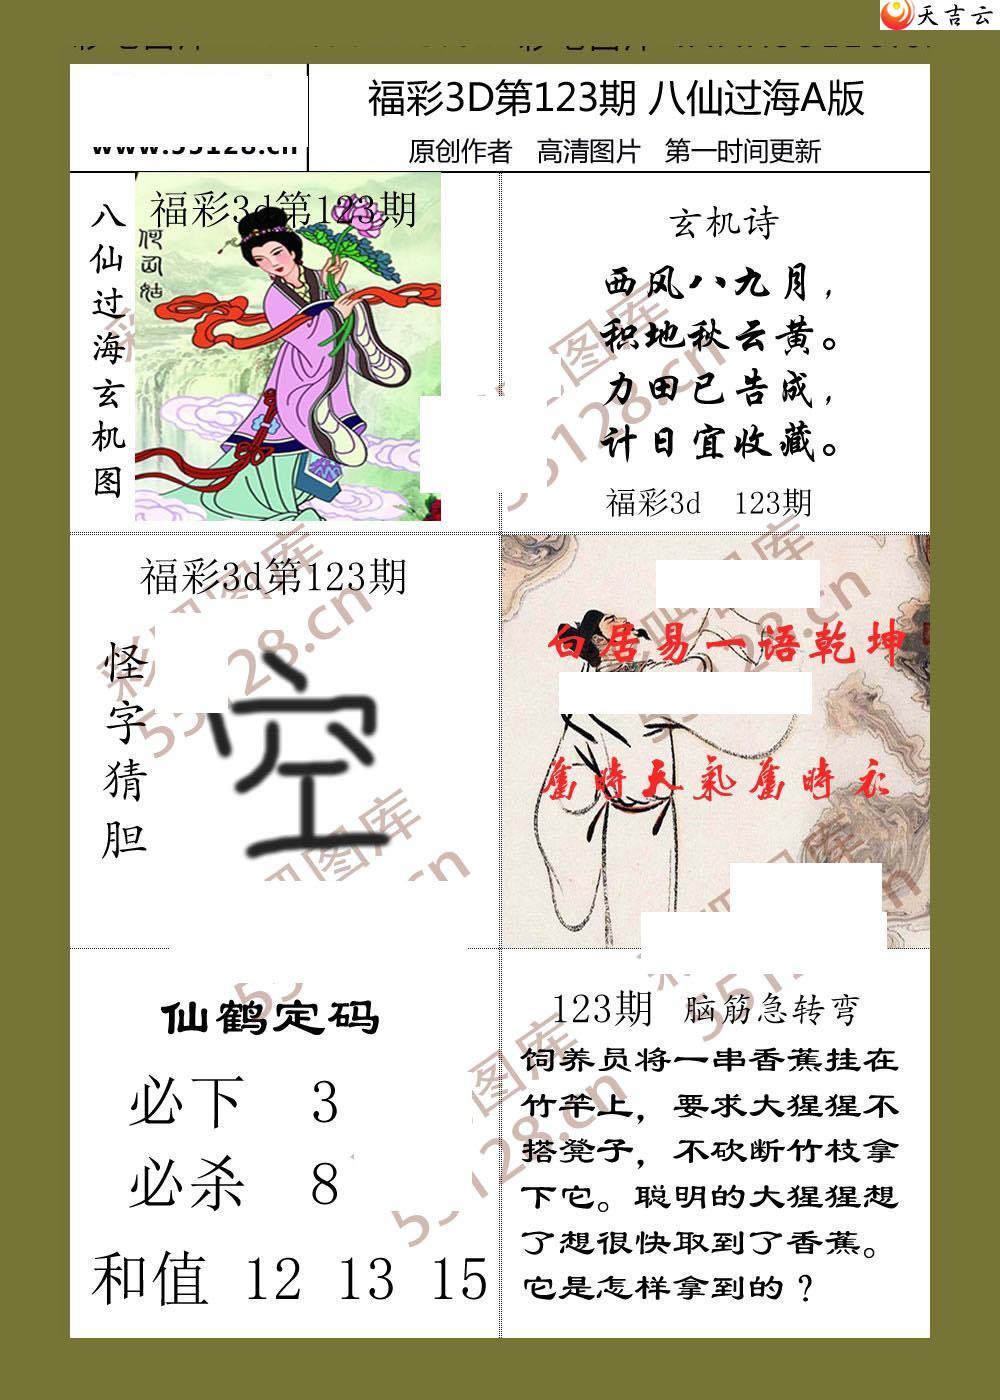 天吉云
福彩3D第123期 八仙过海A版
www.55128.cn
原创作者 高清图片 第一时间更新
八仙过海玄机图
福彩3d第123期
何仙姑
玄机诗
西风八九月，
积地秋云黄。
力田已告成，
计日宜收藏。
福彩3d 123期
福彩3d第123期
怪字猜胆
空
白居易一语乾坤
舊時天氣舊時衣
仙鹤定码
必下 3
必杀 8
和值 12 13 15
123期 脑筋急转弯
饲养员将一串香蕉挂在
竹竿上，要求大猩猩不
搭凳子，不砍断竹枝拿
下它。聪明的大猩猩想
了想很快取到了香蕉。
它是怎样拿到的？